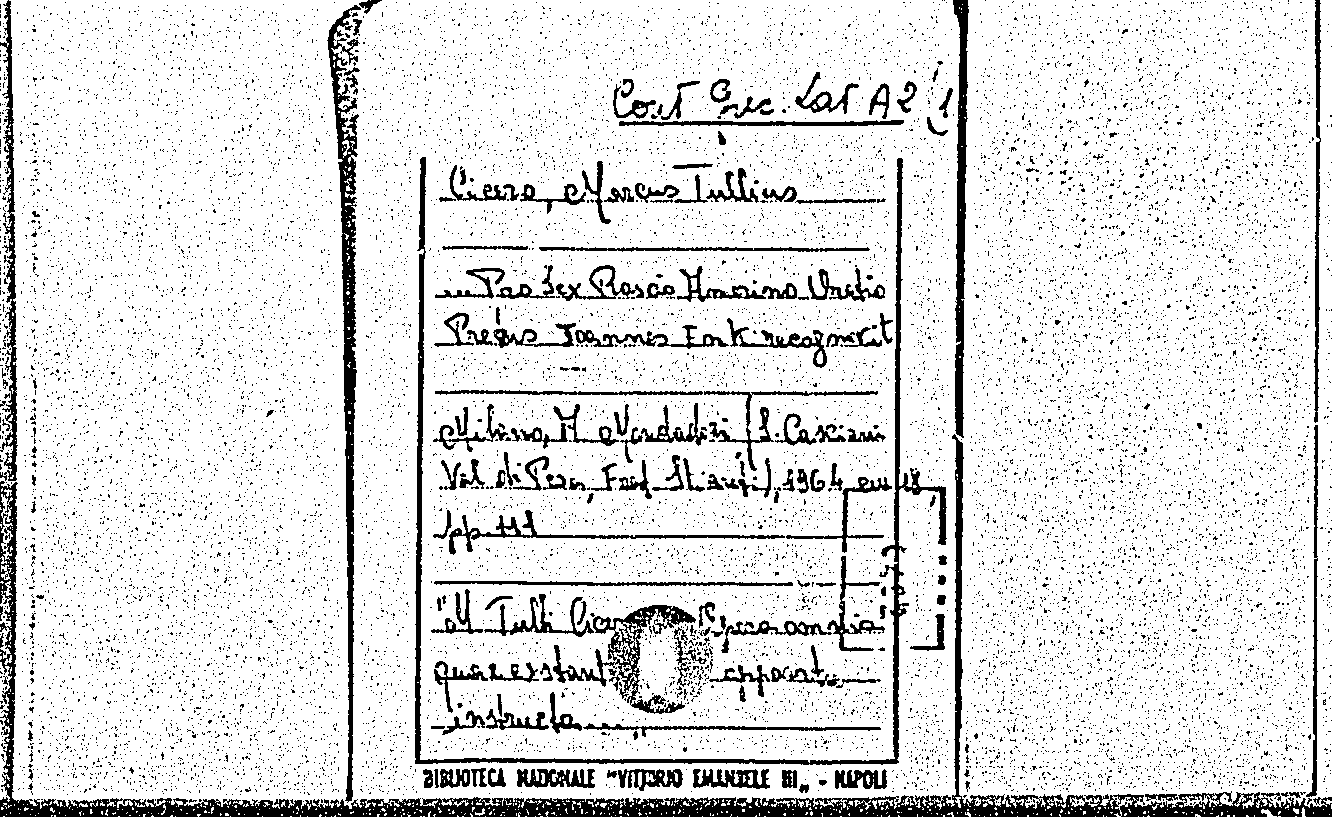 Coll Grec. Lat A 2 (1
Cicero, Marcus Tullius
... Pro Sex Roscio Amerino Oratio
Joannes recognovit
Milano, A Mondadori (S. Casciani
Val di Pesa, Stianti), 1964 em 18,
pp. 111
"M Tulli Cicer omnia
quae exstant apparatu
instructa ... "
BIBLIOTECA NAZIONALE "VITTORIO EMANUELE III„ - NAPOLI